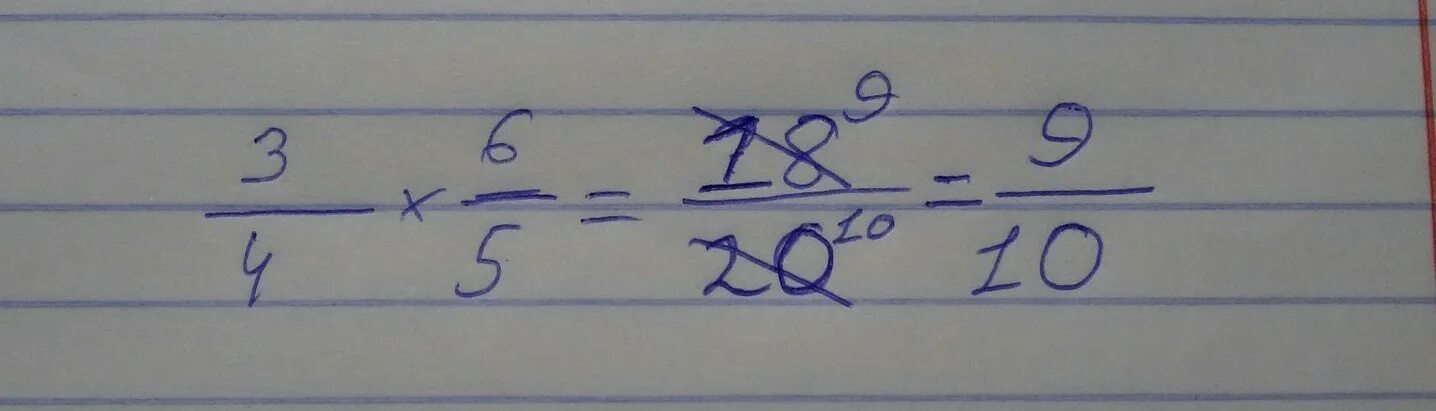 3/4 × 6/5 = 18 9/20 10 = 9/10